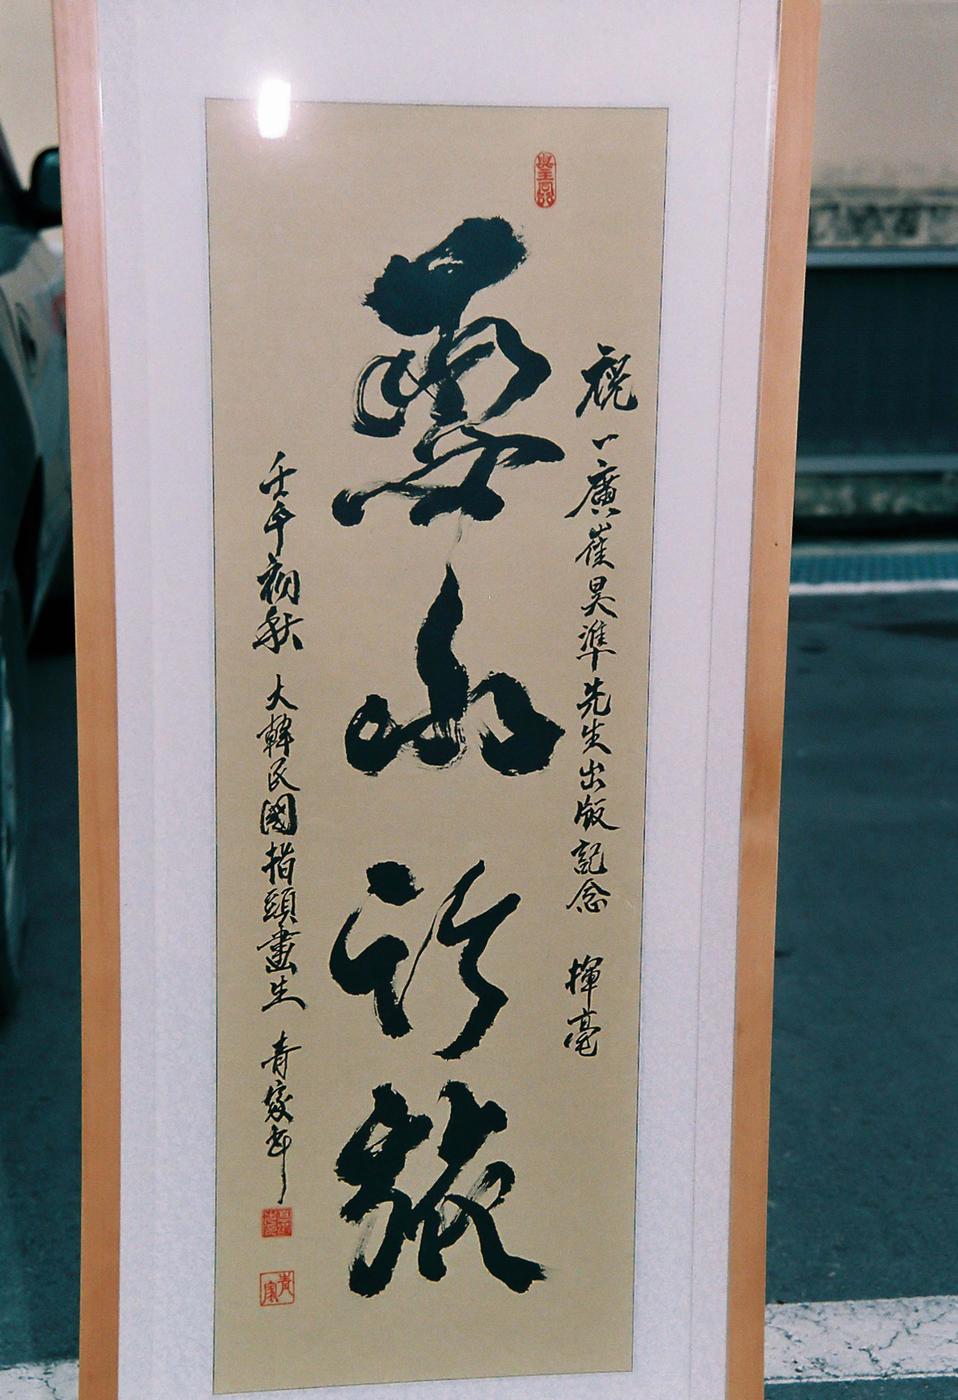 靈山行旅
祝 一廣崔昊準先生出版記念 揮毫
壬午初秋 大韓民國指頭畫生 青家
青家